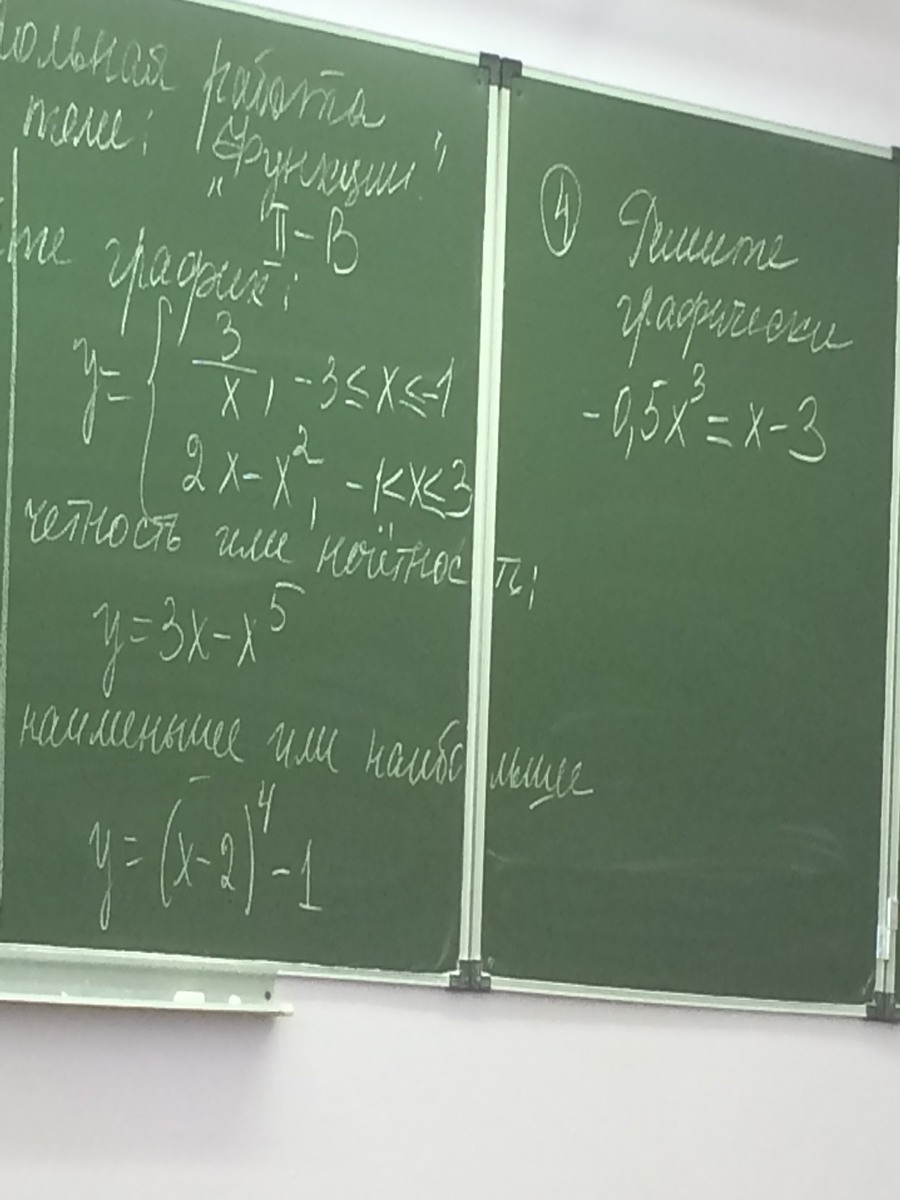 ольная работа
теме: "Функции"
II-В
те график:
y = { 3/x, -3 ≤ x ≤ -1
2x - x², -1 < x ≤ 3
четность или нечётность;
y = 3x - x⁵
наименьшее или наибольшее
y = (x-2)⁴ - 1
④ Решите
графически
-0,5x³ = x - 3